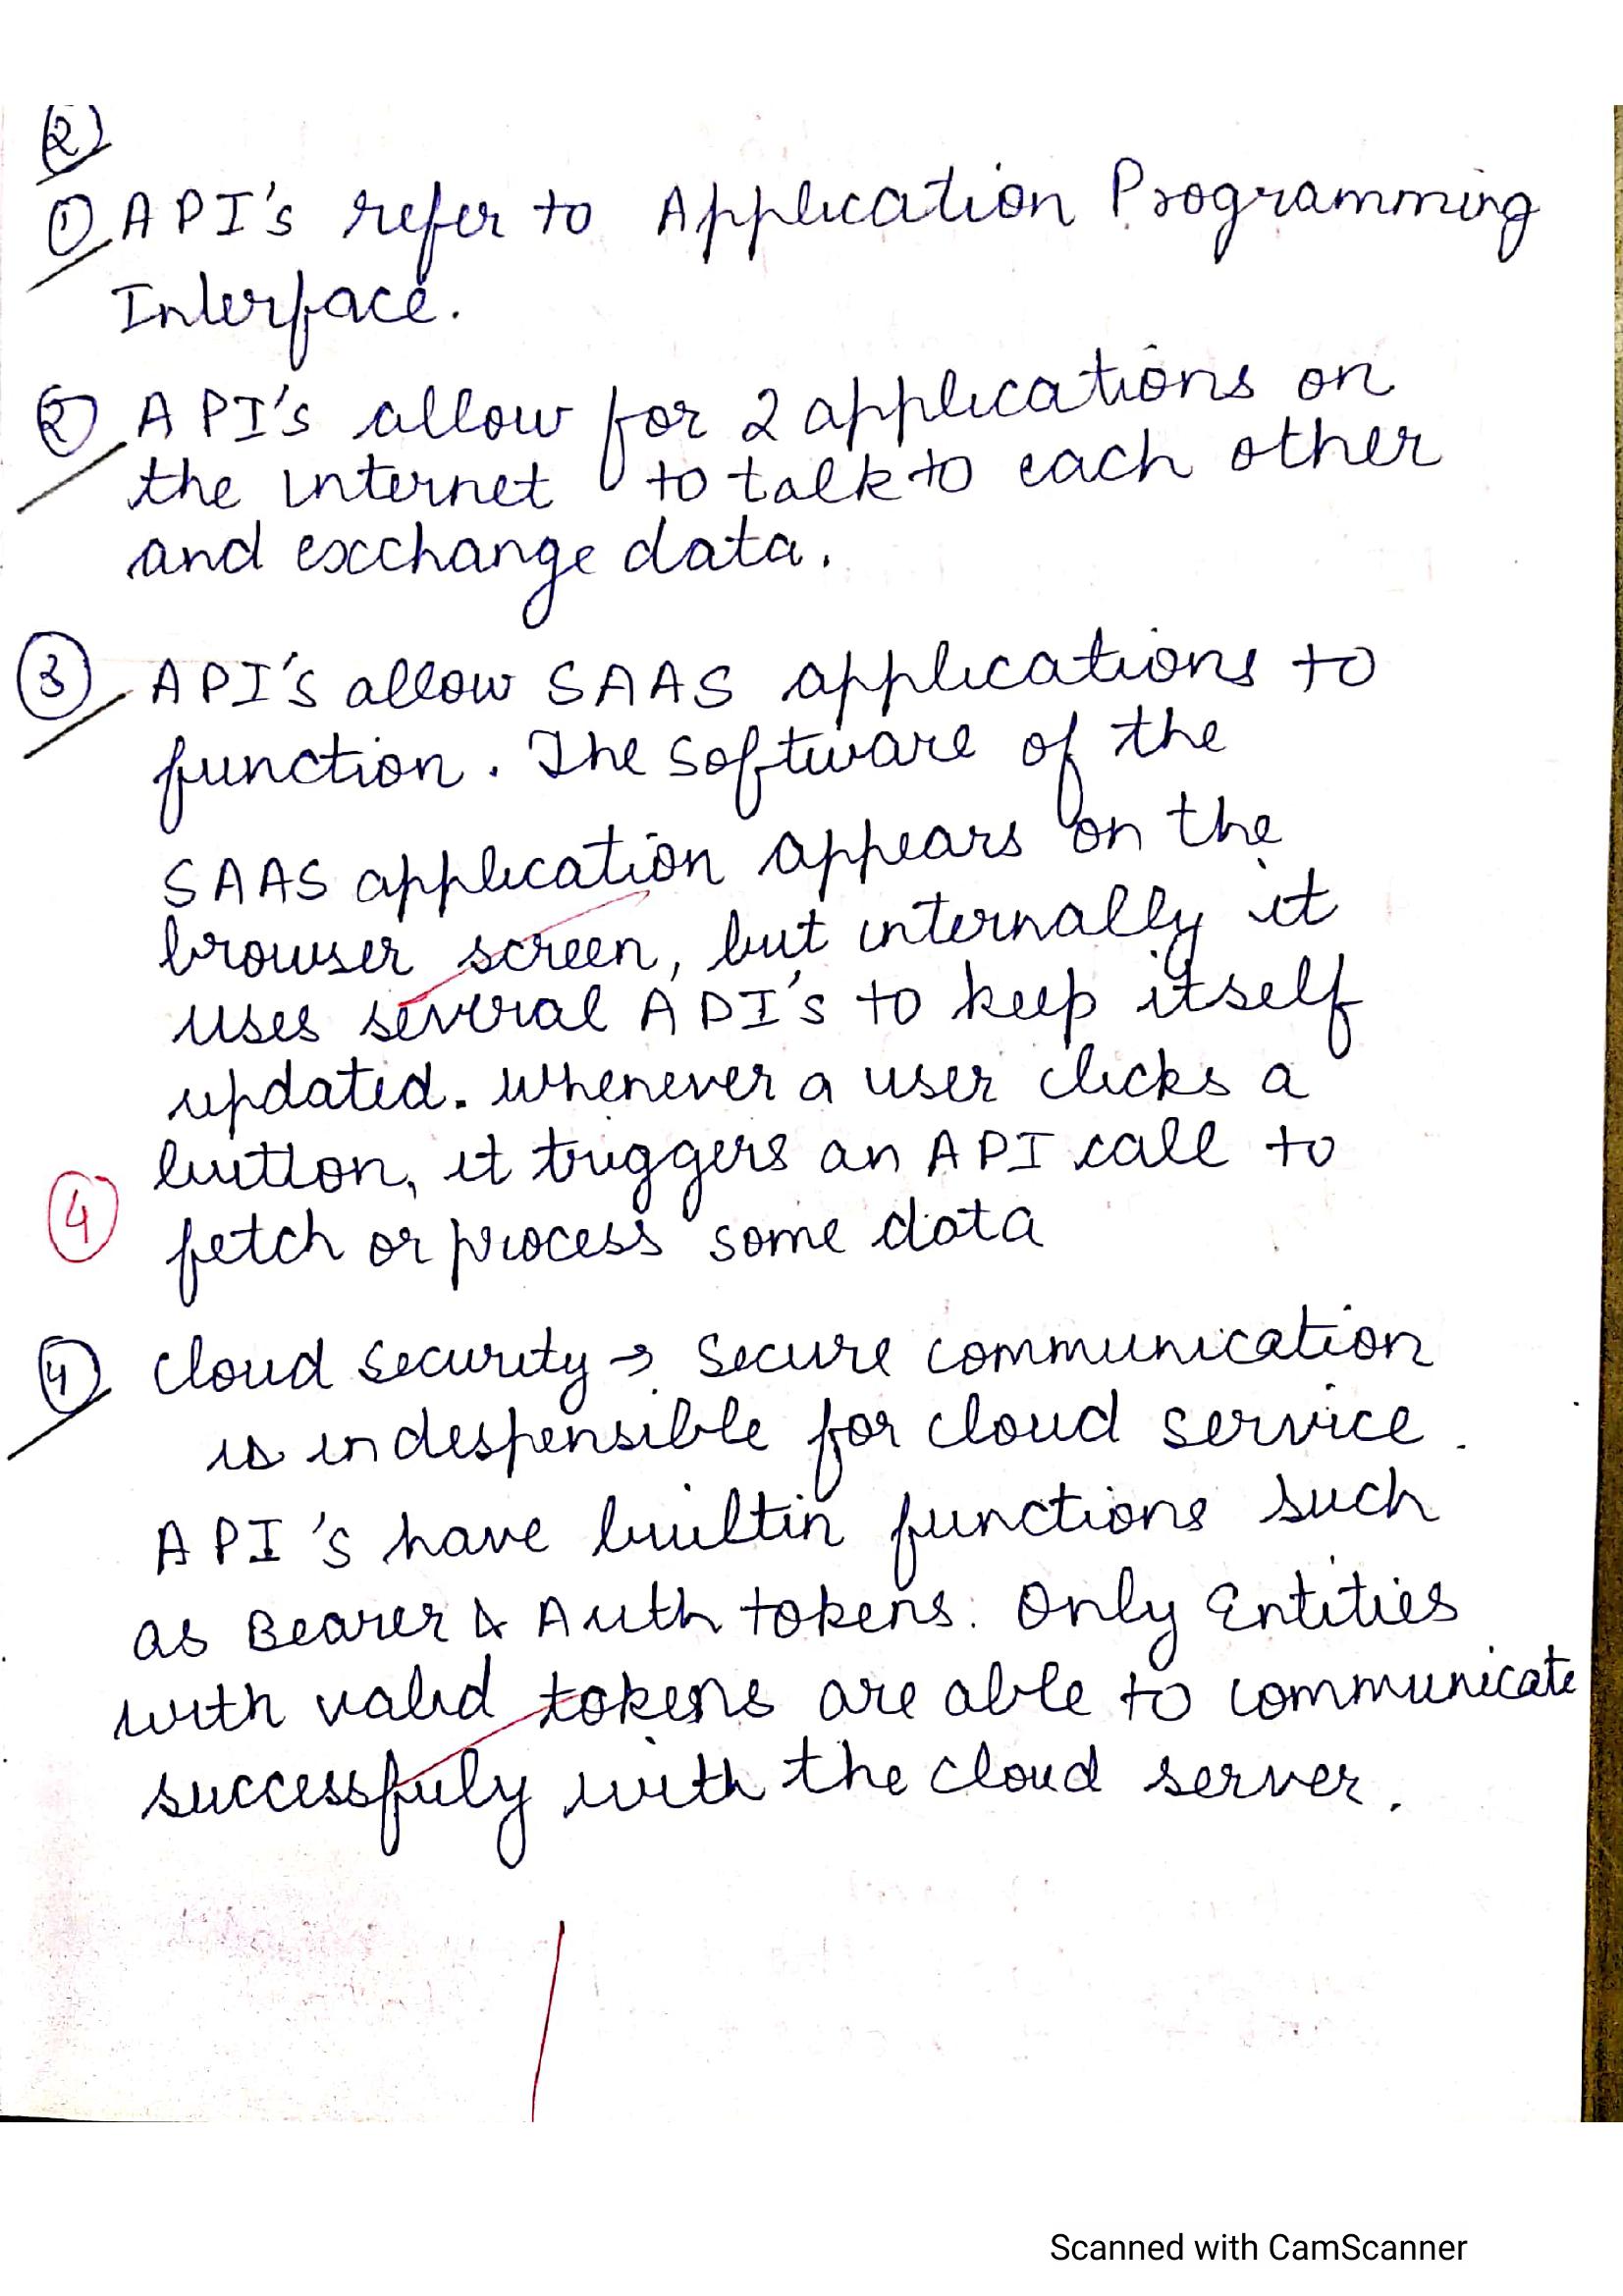 2)
1) API's refer to Application Programming
Interface.
2) API's allow for 2 applications on
the internet to talk to each other
and exchange data.
3) API's allow SAAS applications to
function. The software of the
SAAS application appears on the
browser screen, but internally it
uses several API's to keep itself
updated. Whenever a user clicks a
button, it triggers an API call to
4
fetch or process some data
4) Cloud security → Secure communication
is indespensible for cloud service.
API's have builtin functions such
as Bearer & Auth tokens. Only Entities
with valid tokens are able to communicate
successfuly with the cloud server.
Scanned with CamScanner